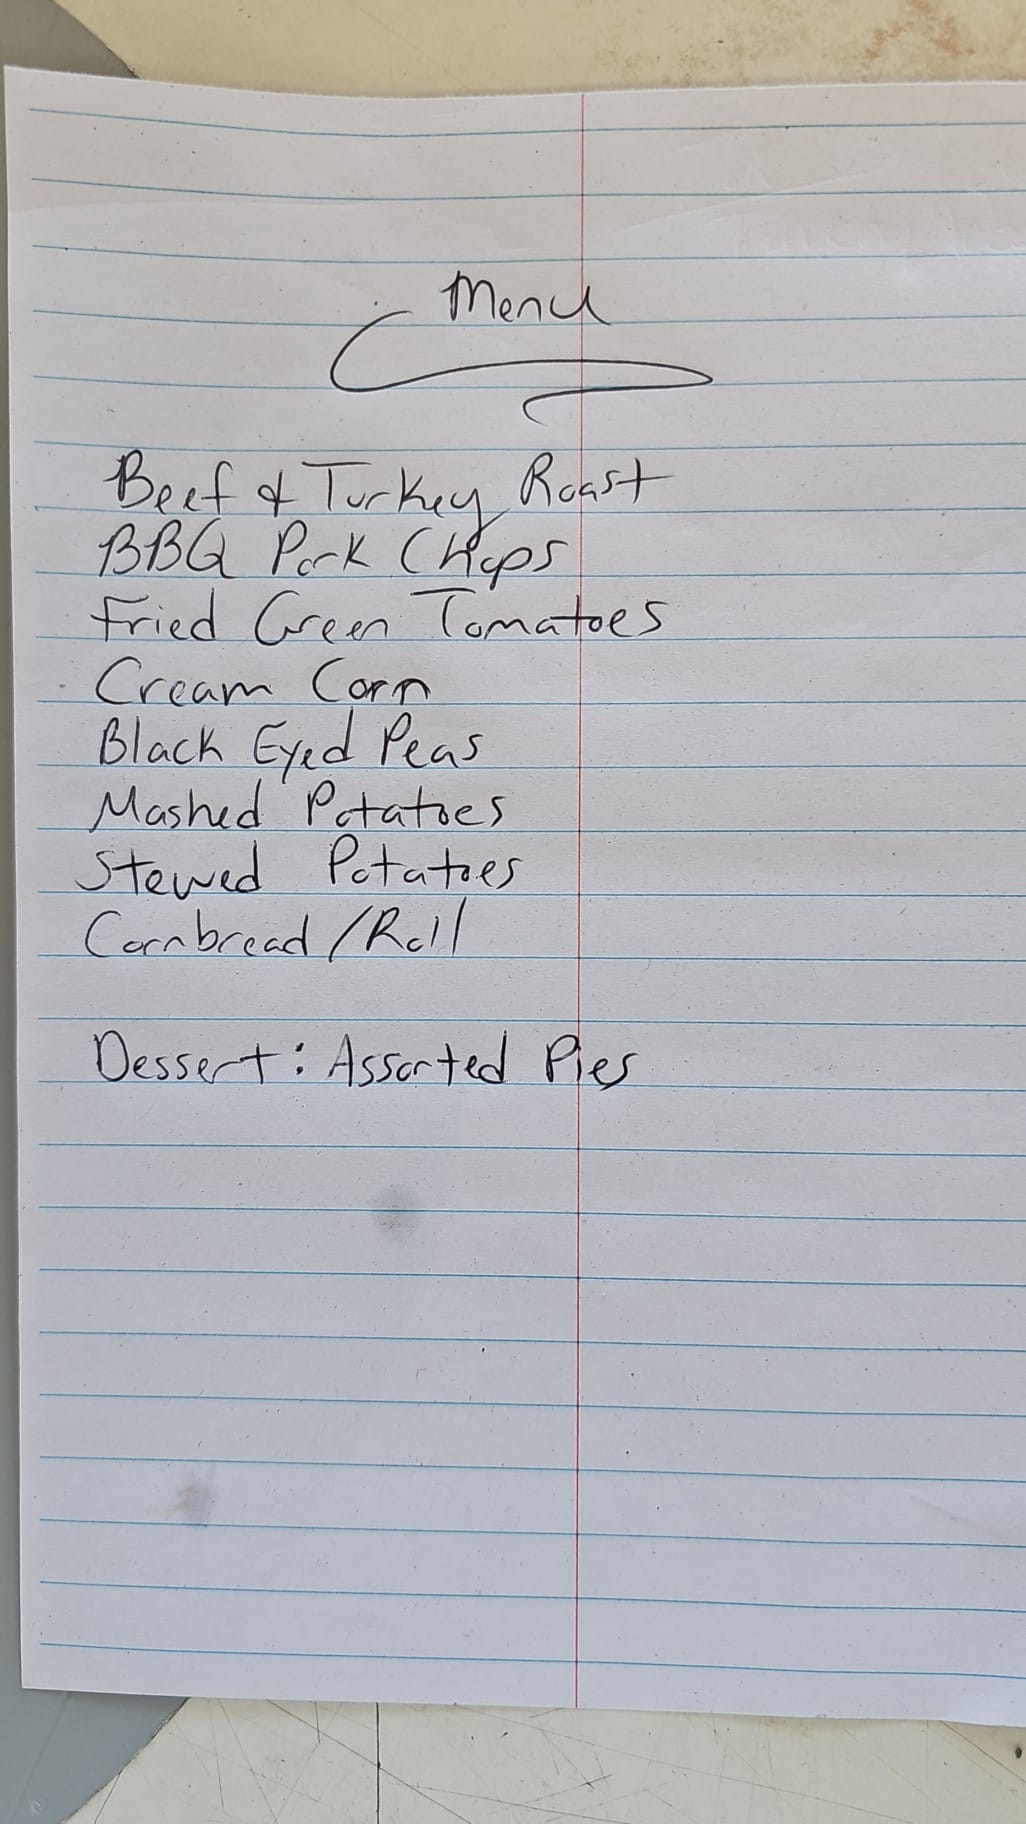 Menu
Beef & Turkey Roast
BBQ Pork Chops
Fried Green Tomatoes
Cream Corn
Black Eyed Peas
Mashed Potatoes
Stewed Potatoes
Cornbread/Roll
Dessert: Assorted Pies